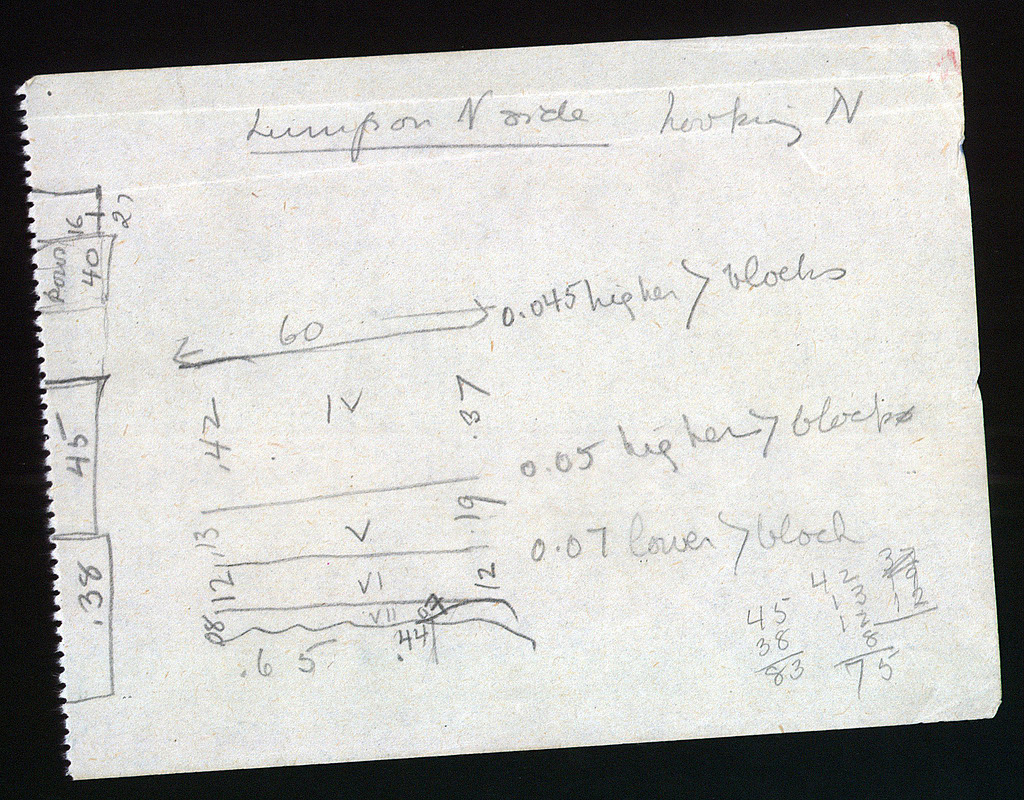 Lump on N side looking N
16
27
Rows
40
45
.38
60
0.045 higher > blocks
.42
IV
.37
0.05 higher > blocks
.13
V
.19
0.07 lower > block
.12
VI
12
08
VII
07
.44
.6 5
45
38
83
42
13
12
8
75
37
19
12